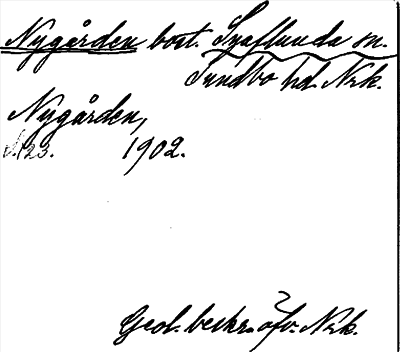 Nygården bost. Lyaflunda sn.
Sundbo hd. Nrk.
Nygården,
s. 123. 1902.
Geol. beskr. öfv. Nrk.